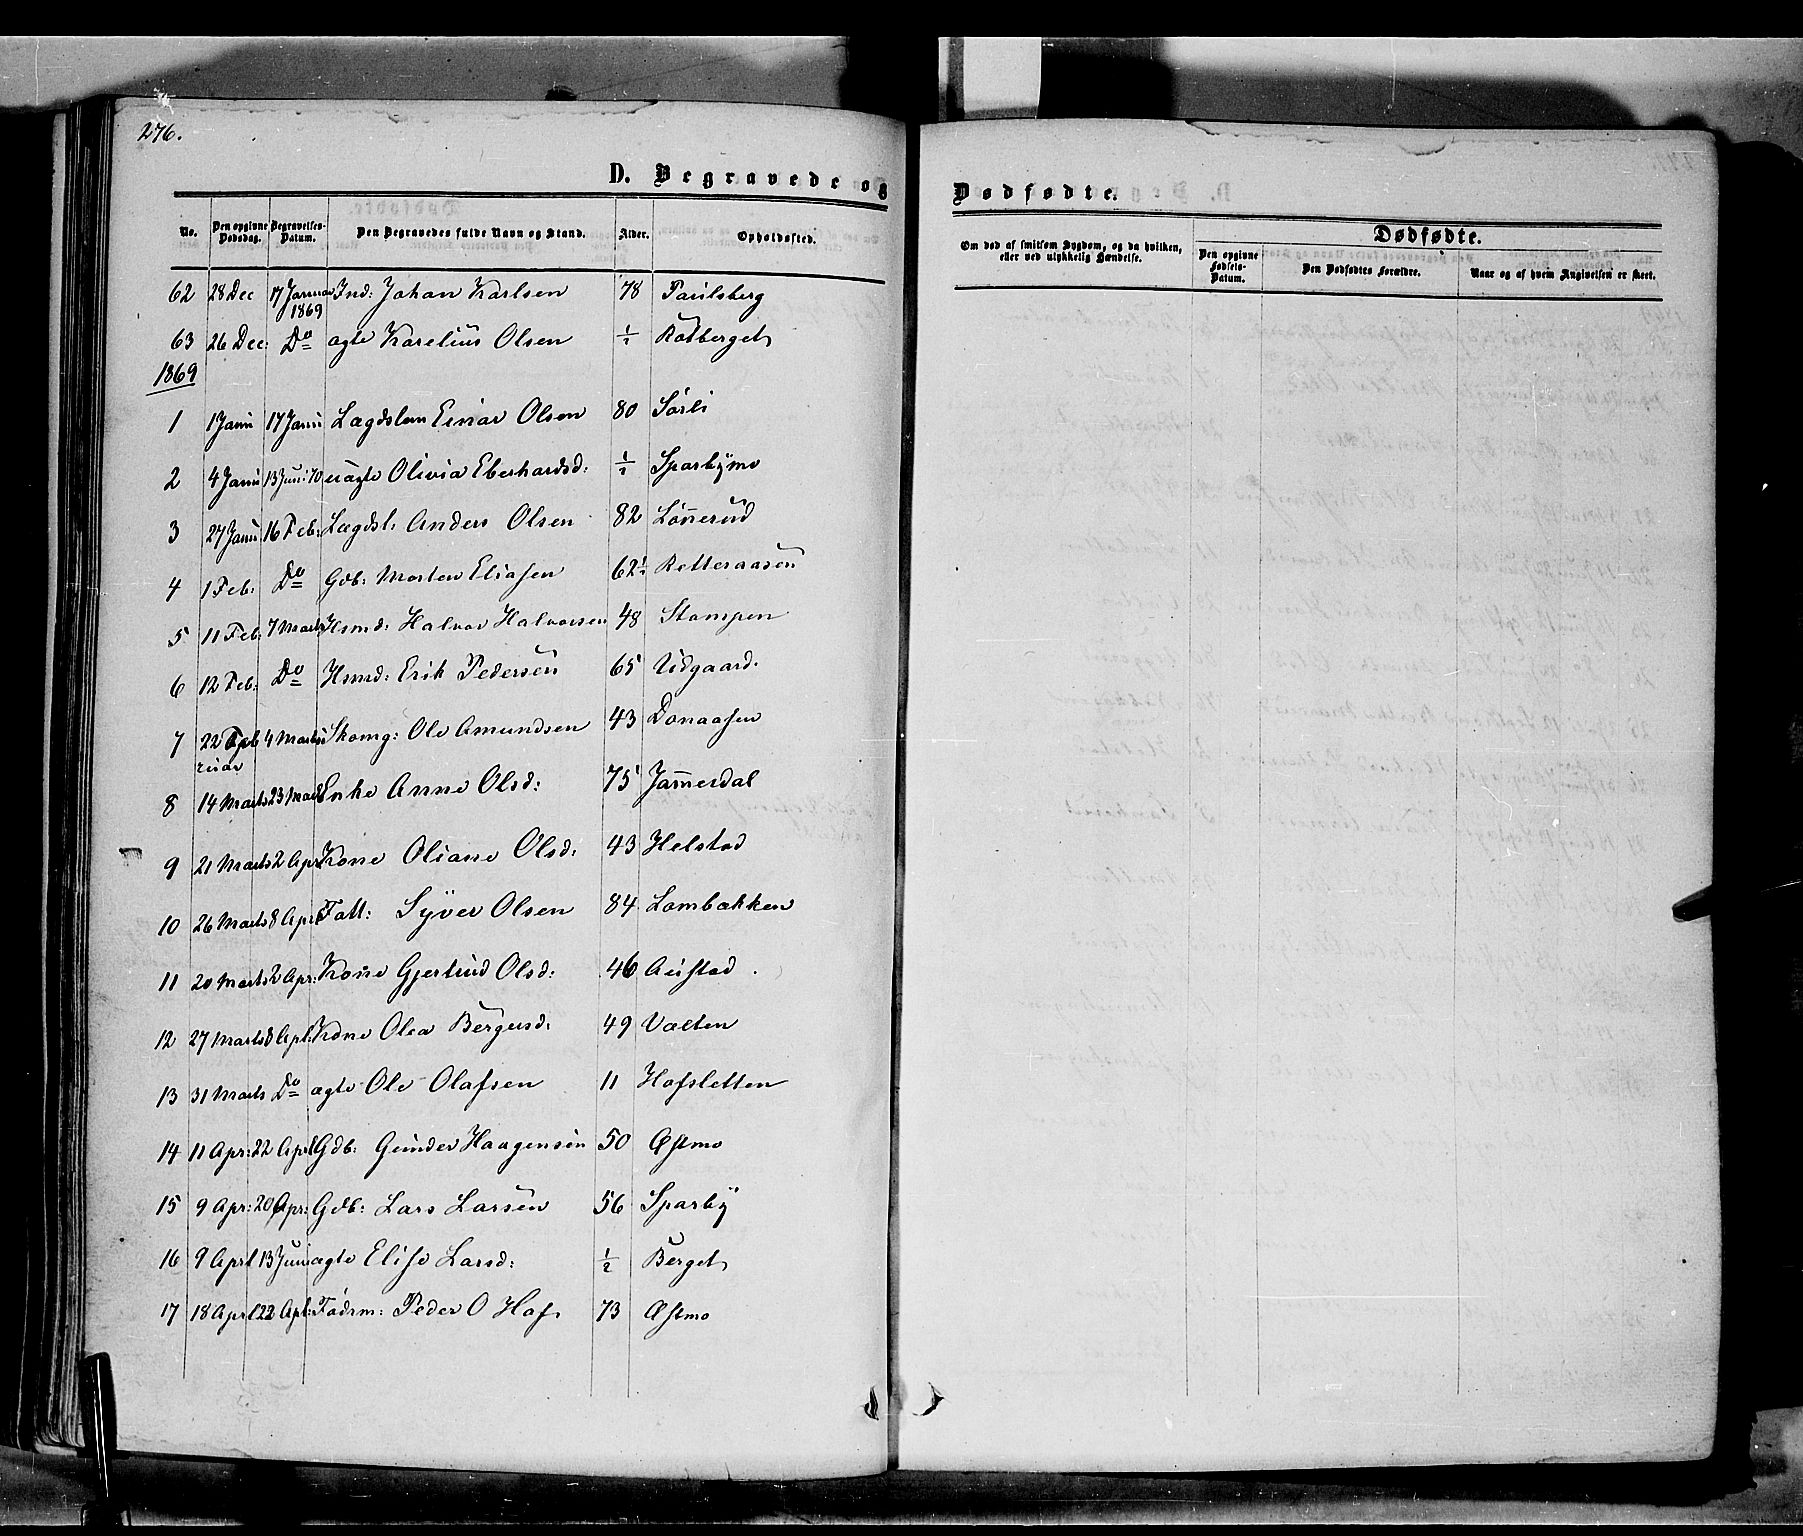 276.
D. Begravede og
Dødfødte.
No. Den opgivne Dødsdag. Begravelses-Datum. Den Begravedes fulde Navn og Stand. Alder. Opholdssted.
Om død af smitsom Sygdom, og da hvilken, eller ved ulykkelig Hændelse.
Dødfødte.
Den opgivne Fødsels-Datum. Den Dødfødtes Forældre. Naar og af hvem Angivelsen er skeet.
62 28 Dec 17 Januar 1869 Ind: Johan Karlsen 78 Paulsberg
63 26 Dec: Do ægte Karelius Olsen Rotberget
1869
1 1 Janu 17 Janu Lægdslem Einar Olsen 80 Sørli
2 4 Janu 13 Juni 70 uægte Olivia Eberhardsd: Sparbymo
3 27 Janu 16 Feb: Lægdsl: Anders Olsen 82 Lønnerud
4 1 Feb: Do Gdb: Morten Eliasen 62½ Retteraasen
5 11 Feb: 7 Marts Hsmd: Halvor Halvorsen 48 Stampen
6 12 Feb: Do Hsmd: Erik Pedersen 65 Udgaard.
7 22 Februar 4 Marts Skomg: Ole Amundsen 43 Donaasen
8 14 Marts 23 Marts Enke Anne Olsd: 75 Jammerdal
9 21 Marts 2 Apr: Kone Oliane Olsd: 43 Helstad
10 26 Marts 8 Apr: Fatt: Syver Olsen 84 Lombækken
11 20 Marts 2 Apr: Kone Gjertrud Olsd: 46 Austad
12 27 Marts 8 Apl: Kone Olea Bergersd: 49 Valten
13 31 Marts Do ægte Ole Olafsen 11 Hofsletten
14 11 Apr: 22 Apl Gdb: Gunder Haagensen 50 Østmo
15 9 Apr: 20 Apr: Gdb: Lars Larsen 56 Sparby
16 9 Aprl 13 Juni ægte Elise Larsd: ½ Berget
17 18 Aprl 22 Apl: Føderm: Peder O Hof 73 Østmo